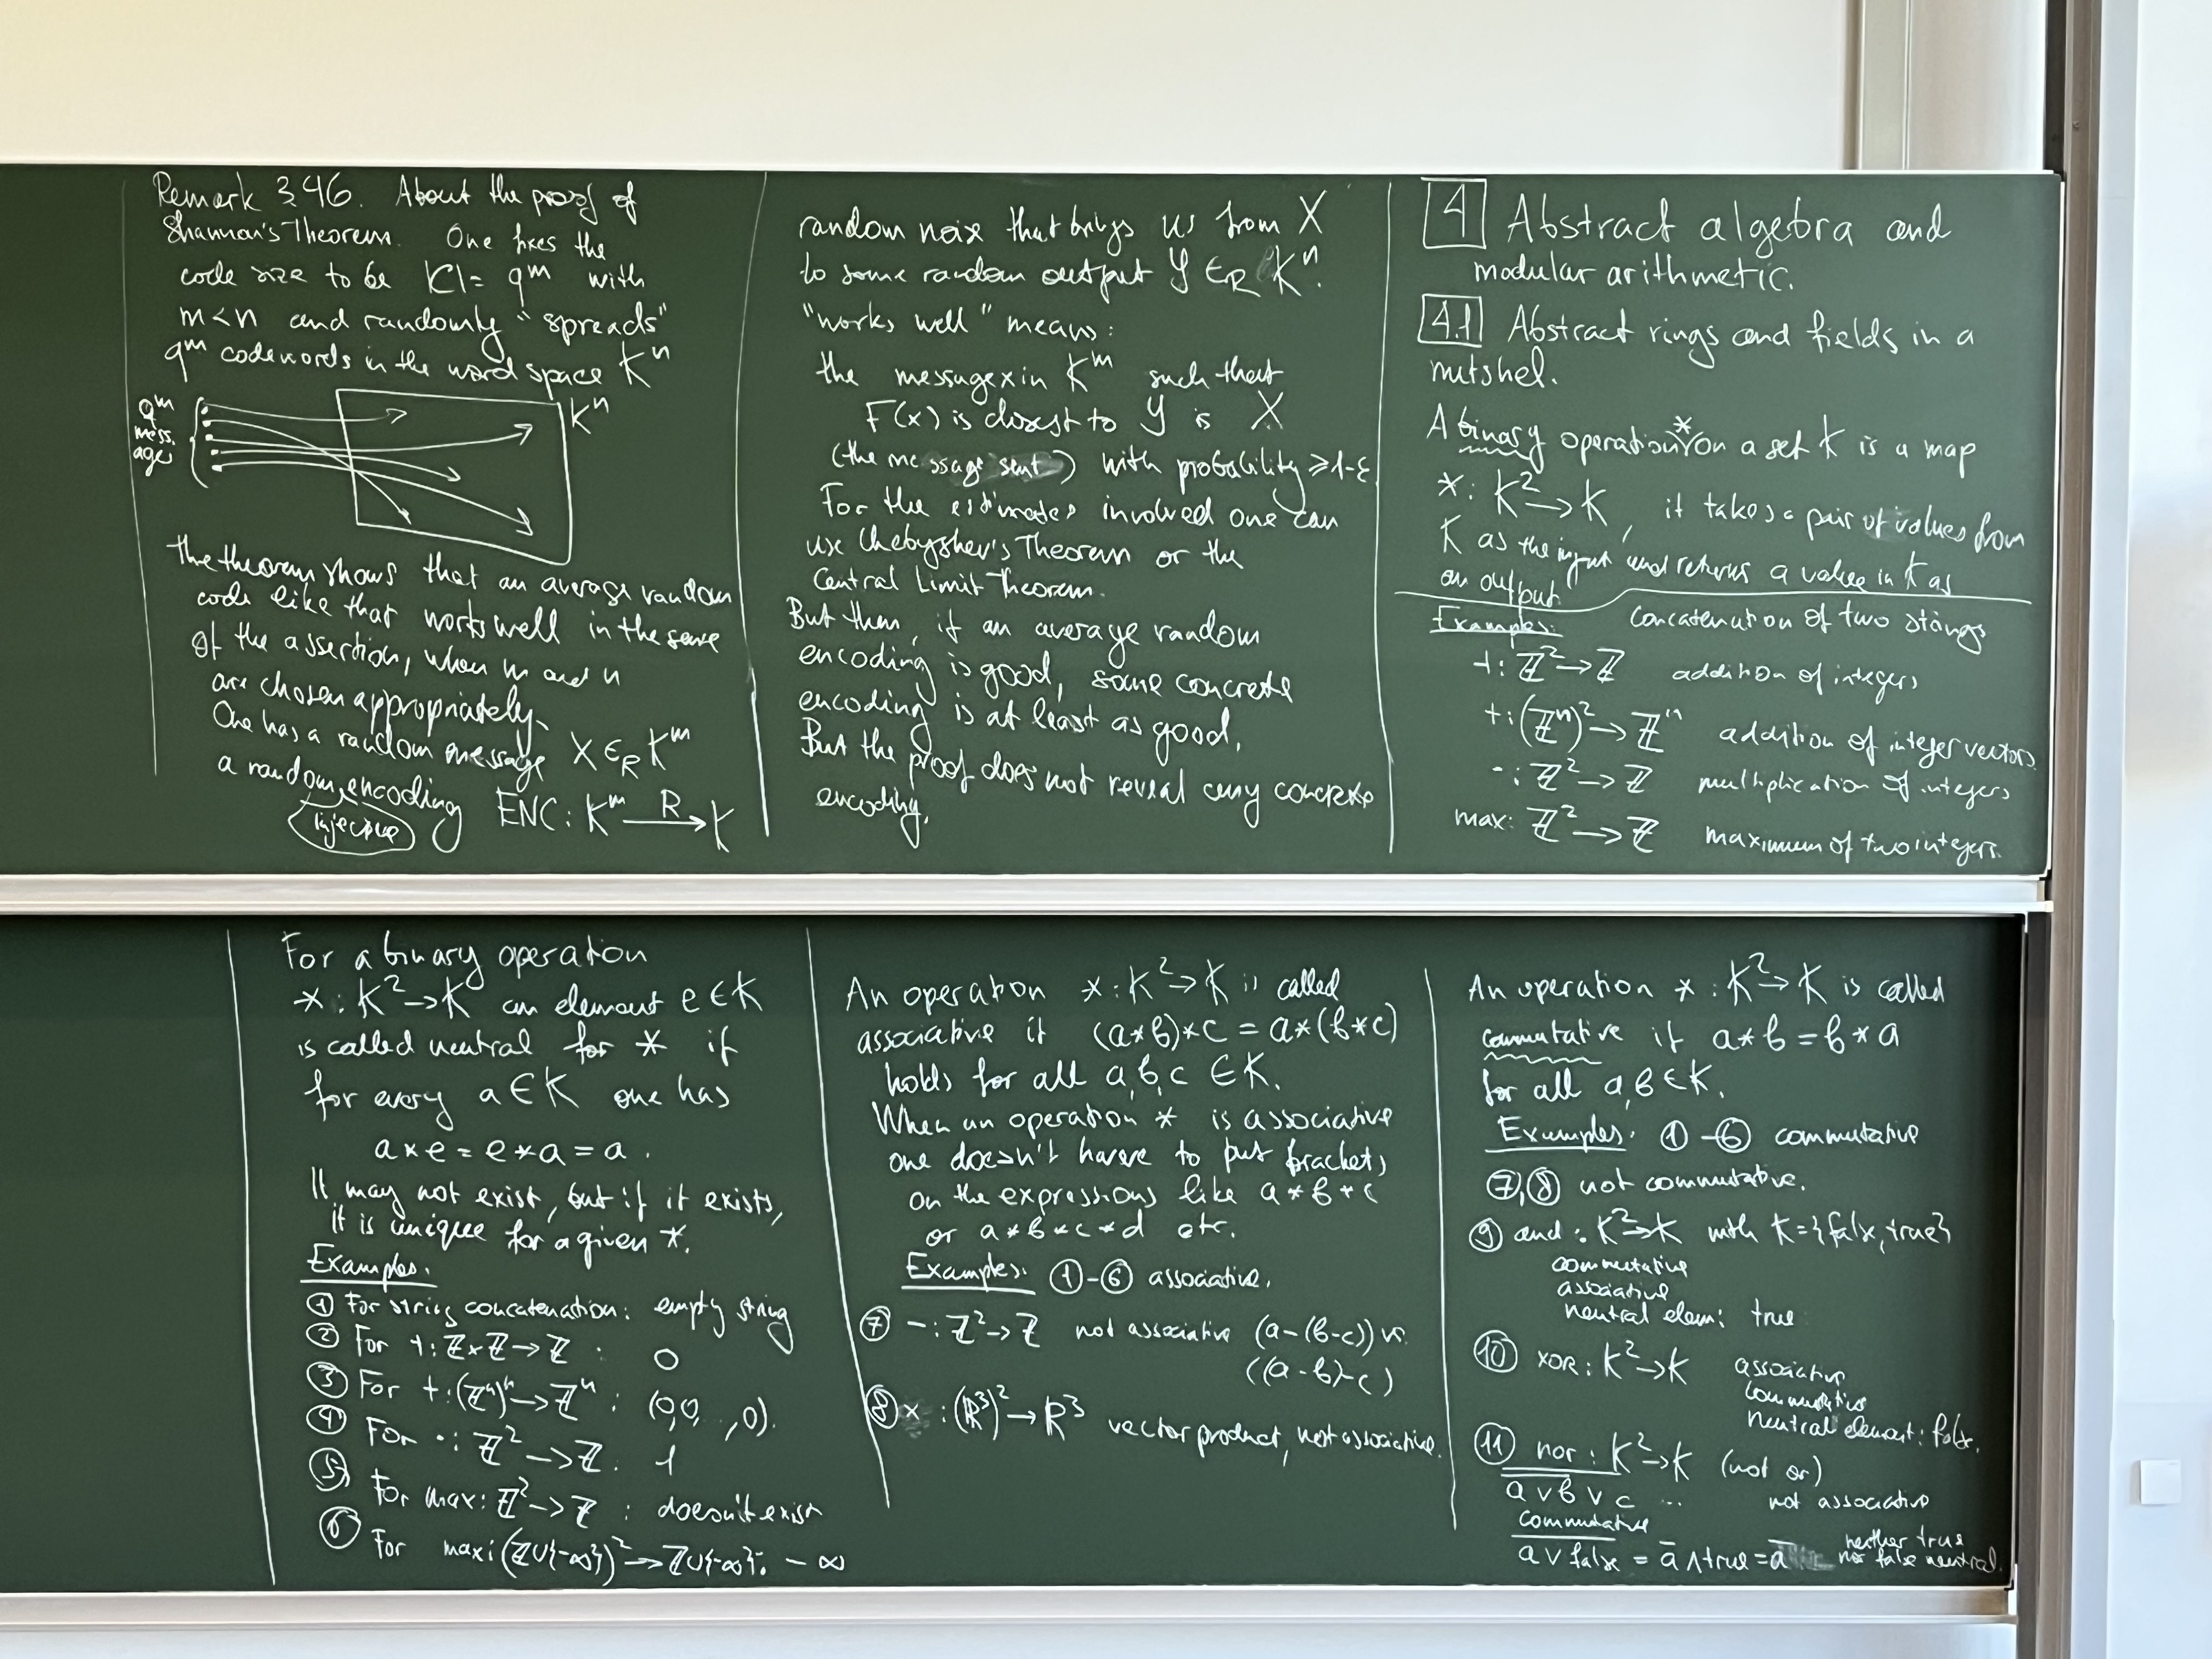 Remark 3.46. About the proof of
Shannon's Theorem. One fixes the
code size to be |C| = q^m with
m<n and randomly "spreads"
q^m codewords in the word space K^n
q^m
mess.
ages
K^n
the theorem shows that an average random
code like that works well in the sense
of the assertion, when m and n
are chosen appropriately.
One has a random message X ∈_R K^m
a random encoding ENC: K^m —R→ K
injective
random noise that brings us from X
to some random output Y ∈_R K^n.
"works well" means:
the message x in K^m such that
F(x) is closest to Y is X
(the message sent) with probability ≥ 1-ε
For the estimates involved one can
use Chebyshev's Theorem or the
Central Limit Theorem.
But then, if an average random
encoding is good, some concrete
encoding is at least as good,
But the proof does not reveal any concrete
encoding.
4 Abstract algebra and
modular arithmetic.
4.1 Abstract rings and fields in a
nutshel.
A binary operation * on a set K is a map
*: K² → K, it takes a pair of values from
K as the input and returns a value in K as
an output.
Examples: concatenation of two strings
+: ℤ² → ℤ addition of integers
+: (ℤ^n)² → ℤ^n addition of integer vectors
·: ℤ² → ℤ multiplication of integers
max: ℤ² → ℤ maximum of two integers.
For a binary operation
*: K² → K an element e ∈ K
is called neutral for * if
for every a ∈ K one has
a * e = e * a = a.
It may not exist, but if it exists,
it is unique for a given *.
Examples.
① For string concatenation: empty string
② For +: ℤ×ℤ → ℤ : 0
③ For +: (ℤ^n)^n → ℤ^n : (0,0, ,0).
④ For ·: ℤ² → ℤ : 1
⑤ For max: ℤ² → ℤ : doesn't exist
⑥ For max: (ℤ∪{-∞})² → ℤ∪{-∞}: -∞
An operation *: K² → K is called
associative if (a*b)*c = a*(b*c)
holds for all a,b,c ∈ K.
When an operation * is associative
one doesn't have to put brackets
on the expressions like a*b*c
or a*b*c*d etc.
Examples: ①-⑥ associative.
⑦ -: ℤ² → ℤ not associative (a-(b-c)) vs.
((a-b)-c)
⑧ ×: (ℝ³)² → ℝ³ vector product, not associative.
An operation *: K² → K is called
commutative if a*b = b*a
for all a,b ∈ K.
Examples. ①-⑥ commutative
⑦,⑧ not commutative.
⑨ and: K² → K with K={false,true}
commutative
associative
neutral elem: true
⑩ XOR: K² → K associative
commutative
neutral element: false.
⑪ nor: K² → K (not or)
a̅ ̅∨̅ ̅b̅ ∨ c ... not associative
commutative
a̅ ̅∨̅ ̅f̅a̅l̅s̅e̅ = a̅ ∧ true = a̅ neither true
nor false neutral.